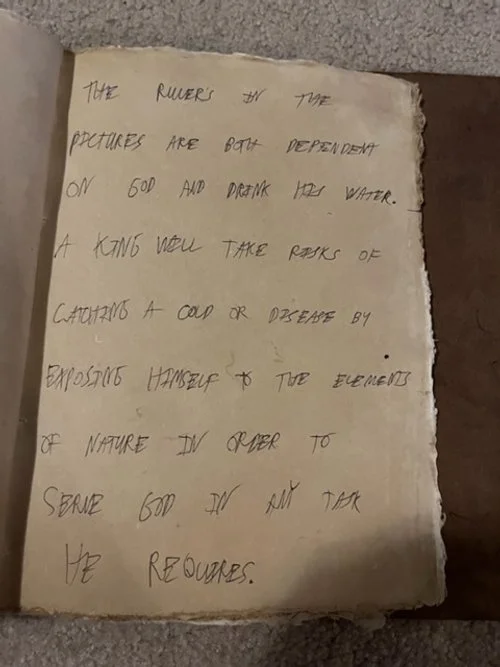 THE RULERS IN THE
PICTURES ARE BOTH DEPENDENT
ON GOD AND DRINK HIS WATER.
A KING WILL TAKE RISKS OF
CATCHING A COLD OR DISEASE BY
EXPOSING HIMSELF TO THE ELEMENTS
OF NATURE IN ORDER TO
SERVE GOD IN ANY TASK
HE REQUIRES.